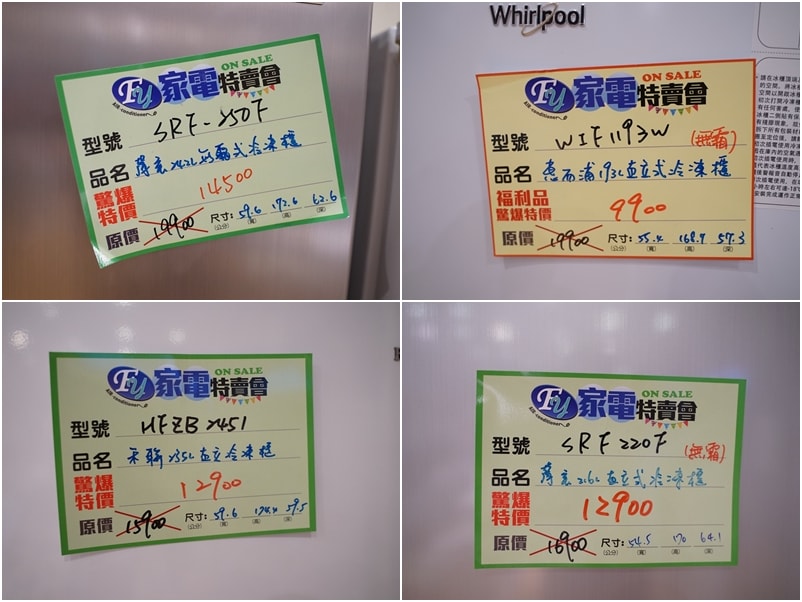 ON SALE
FY 家電特賣會
AIR-conditioner
型號 SRF-250F
品名 242L 無霜式冷凍櫃
驚爆特價 14500
原價 19900 尺寸: 59.6 172.6 62.6
(公分) (寬) (高) (深)
Whirlpool
ON SALE
FY 家電特賣會
AIR-conditioner
型號 WIF1193W (無霜)
品名 惠而浦193L直立式冷凍櫃
福利品
驚爆特價 9900
原價 19900 尺寸: 55.4 168.7 57.3
(公分) (寬) (高) (深)
ON SALE
FY 家電特賣會
AIR-conditioner
型號 HFZB2451
品名 禾聯235L直立冷凍櫃
驚爆特價 12900
原價 15900 尺寸: 59.6 59.5
(公分) (寬) (高) (深)
ON SALE
FY 家電特賣會
AIR-conditioner
型號 SRF220F (無霜)
品名 直立式冷凍櫃
驚爆特價 12900
原價 16900 尺寸: 54.5 170 64.1
(公分) (寬) (高) (深)